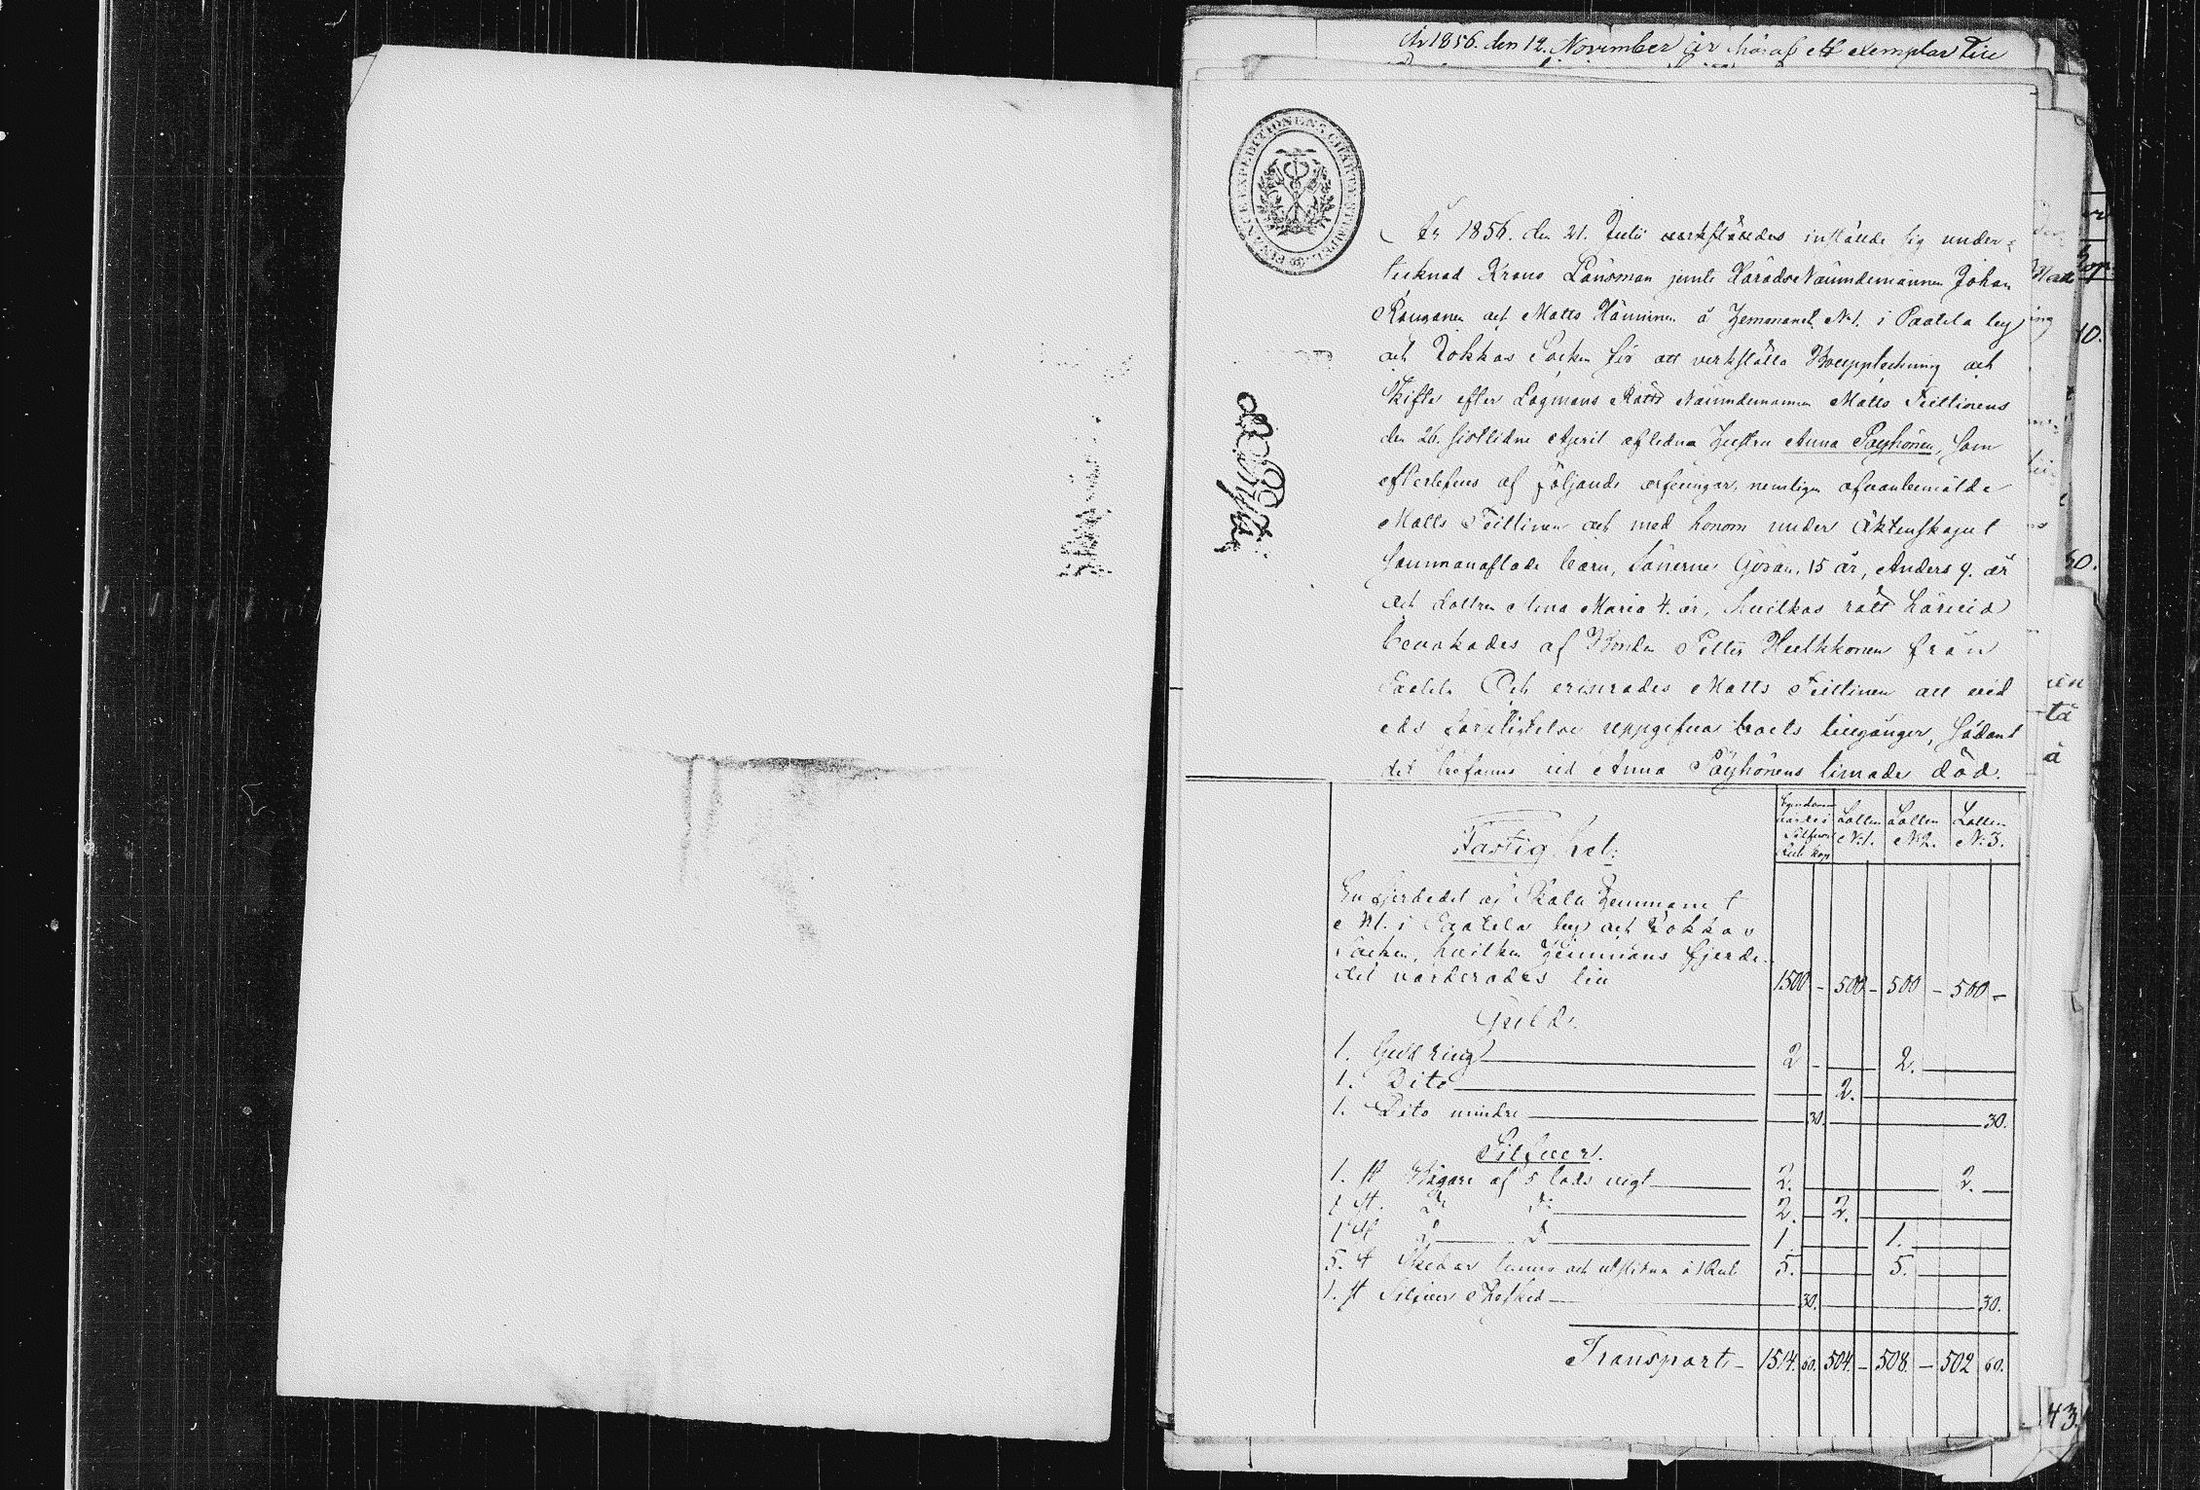 År 1856. den 12. November är häraf ett exemplar till
FINANCE EXPEDITIONENS CHARTÆ STEMPEL
År 1856. den 21. Julii verkställdes inställde sig under-
tecknad Krono Länsman jemte Härads Nämndemännen Johan
och Matts Hänninen å Hemmanet N:1. i Paatela by
och Jokkas Socken för att verkställa Bouppteckning och
Skifte efter Lagmans Rätts Nämndemannen Matts Teittinens
den 26. sistlidne April aflidna Hustru Anna Päyhönen, som
efterlefves af följande arfvingar, nemligen ofvanbemälde
Matts Teittinen och med honom under äktenskapet
sammanaflade barn, Sönerne Göran, 15 år, Anders 9. år
och dottren Anna Maria 4. år, hvilkas rätt härvid
bevakades af Bonden Petter Hulkkonen från
Paatela Och erinrades Matts Teittinen att vid
eds förpligtelse uppgifva boets tillgångar, sådant
det befanns vid Anna Päyhönens timade död.
Egendomens värde i Silfver Rub. kop. Lotten N:1. Lotten N:2. Lotten N:3.
Fastighet:
En fjerdedel af Skatte Hemmanet
N:1. i Paatela by och Jokkas
Socken, hvilken Hemmans fjerde-
del värderades till 1500 - 500 - 500 - 500 -
Guld.
1. Guld ring 2 - 2.
1. Dito 2.
1. Dito mindre 30. 30.
Silfver.
1. st Bägare af 5 lods vigt 2. 2.
1 st. D:o D:o 2. 2.
1 st D:o D:o 1. 1.
5. st Skedar tunna och utslitna à 1 Rub 5. 5.
1. st Silfver Thesked 30. 30.
Transport - 1514. 60. 504. - 508. - 502 60.
43.